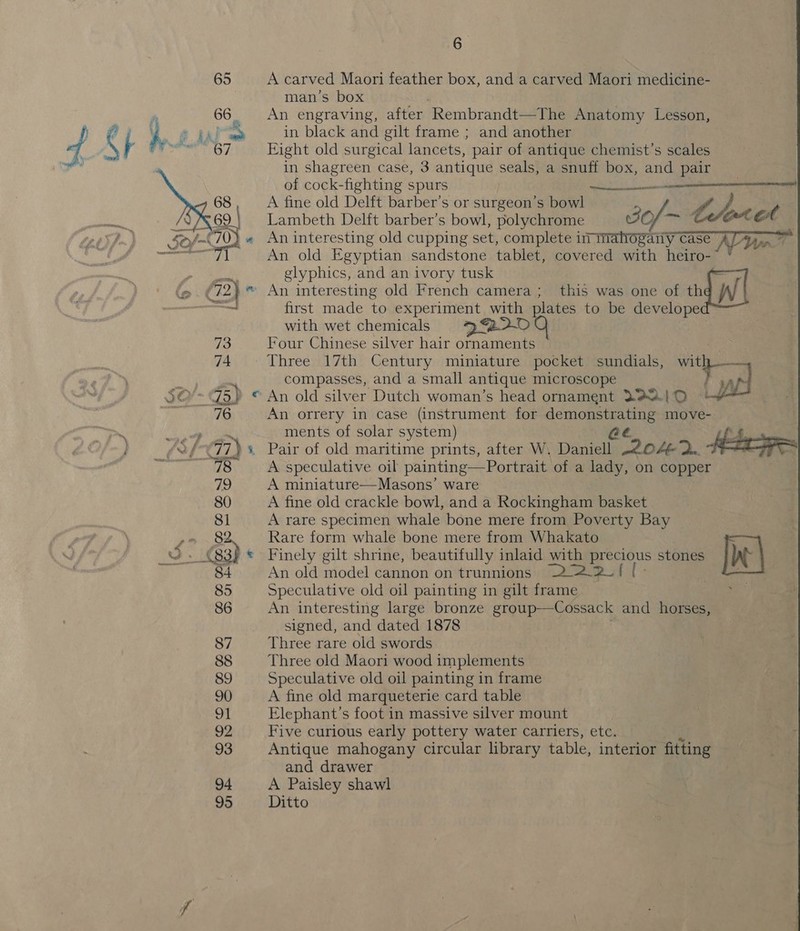 6
65 A carved Maori feather box, and a carved Maori medicine-
man's box
66 An engraving, after Rembrandt—The Anatomy Lesson,
in black and gilt frame ; and another
67 Eight old surgical lancets, pair of antique chemist's scales
in shagreen case, 3 antique seals, a snuff box, and pair
of cock-fighting spurs
68 A fine old Delft barber's or surgeon's bowl
69 Lambeth Delft barber's bowl, polychrome 30/-
50/- 70 An interesting old cupping set, complete in mahogany case
71 An old Egyptian sandstone tablet, covered with heiro-
glyphics, and an ivory tusk
72 An interesting old French camera ; this was one of the
first made to experiment with plates to be developed
with wet chemicals
73 Four Chinese silver hair ornaments
74 Three 17th Century miniature pocket sundials, with
compasses, and a small antique microscope
75 An old silver Dutch woman's head ornament 22210
76 An orrery in case (instrument for demonstrating move-
ments of solar system)
77 Pair of old maritime prints, after W. Daniell 2042.
78 A speculative oil painting—Portrait of a lady, on copper
79 A miniature—Masons' ware
80 A fine old crackle bowl, and a Rockingham basket
81 A rare specimen whale bone mere from Poverty Bay
82 Rare form whale bone mere from Whakato
83 Finely gilt shrine, beautifully inlaid with precious stones
84 An old model cannon on trunnions 22211
85 Speculative old oil painting in gilt frame
86 An interesting large bronze group—Cossack and horses,
signed, and dated 1878
87 Three rare old swords
88 Three old Maori wood implements
89 Speculative old oil painting in frame
90 A fine old marqueterie card table
91 Elephant's foot in massive silver mount
92 Five curious early pottery water carriers, etc.
93 Antique mahogany circular library table, interior fitting
and drawer
94 A Paisley shawl
95 Ditto